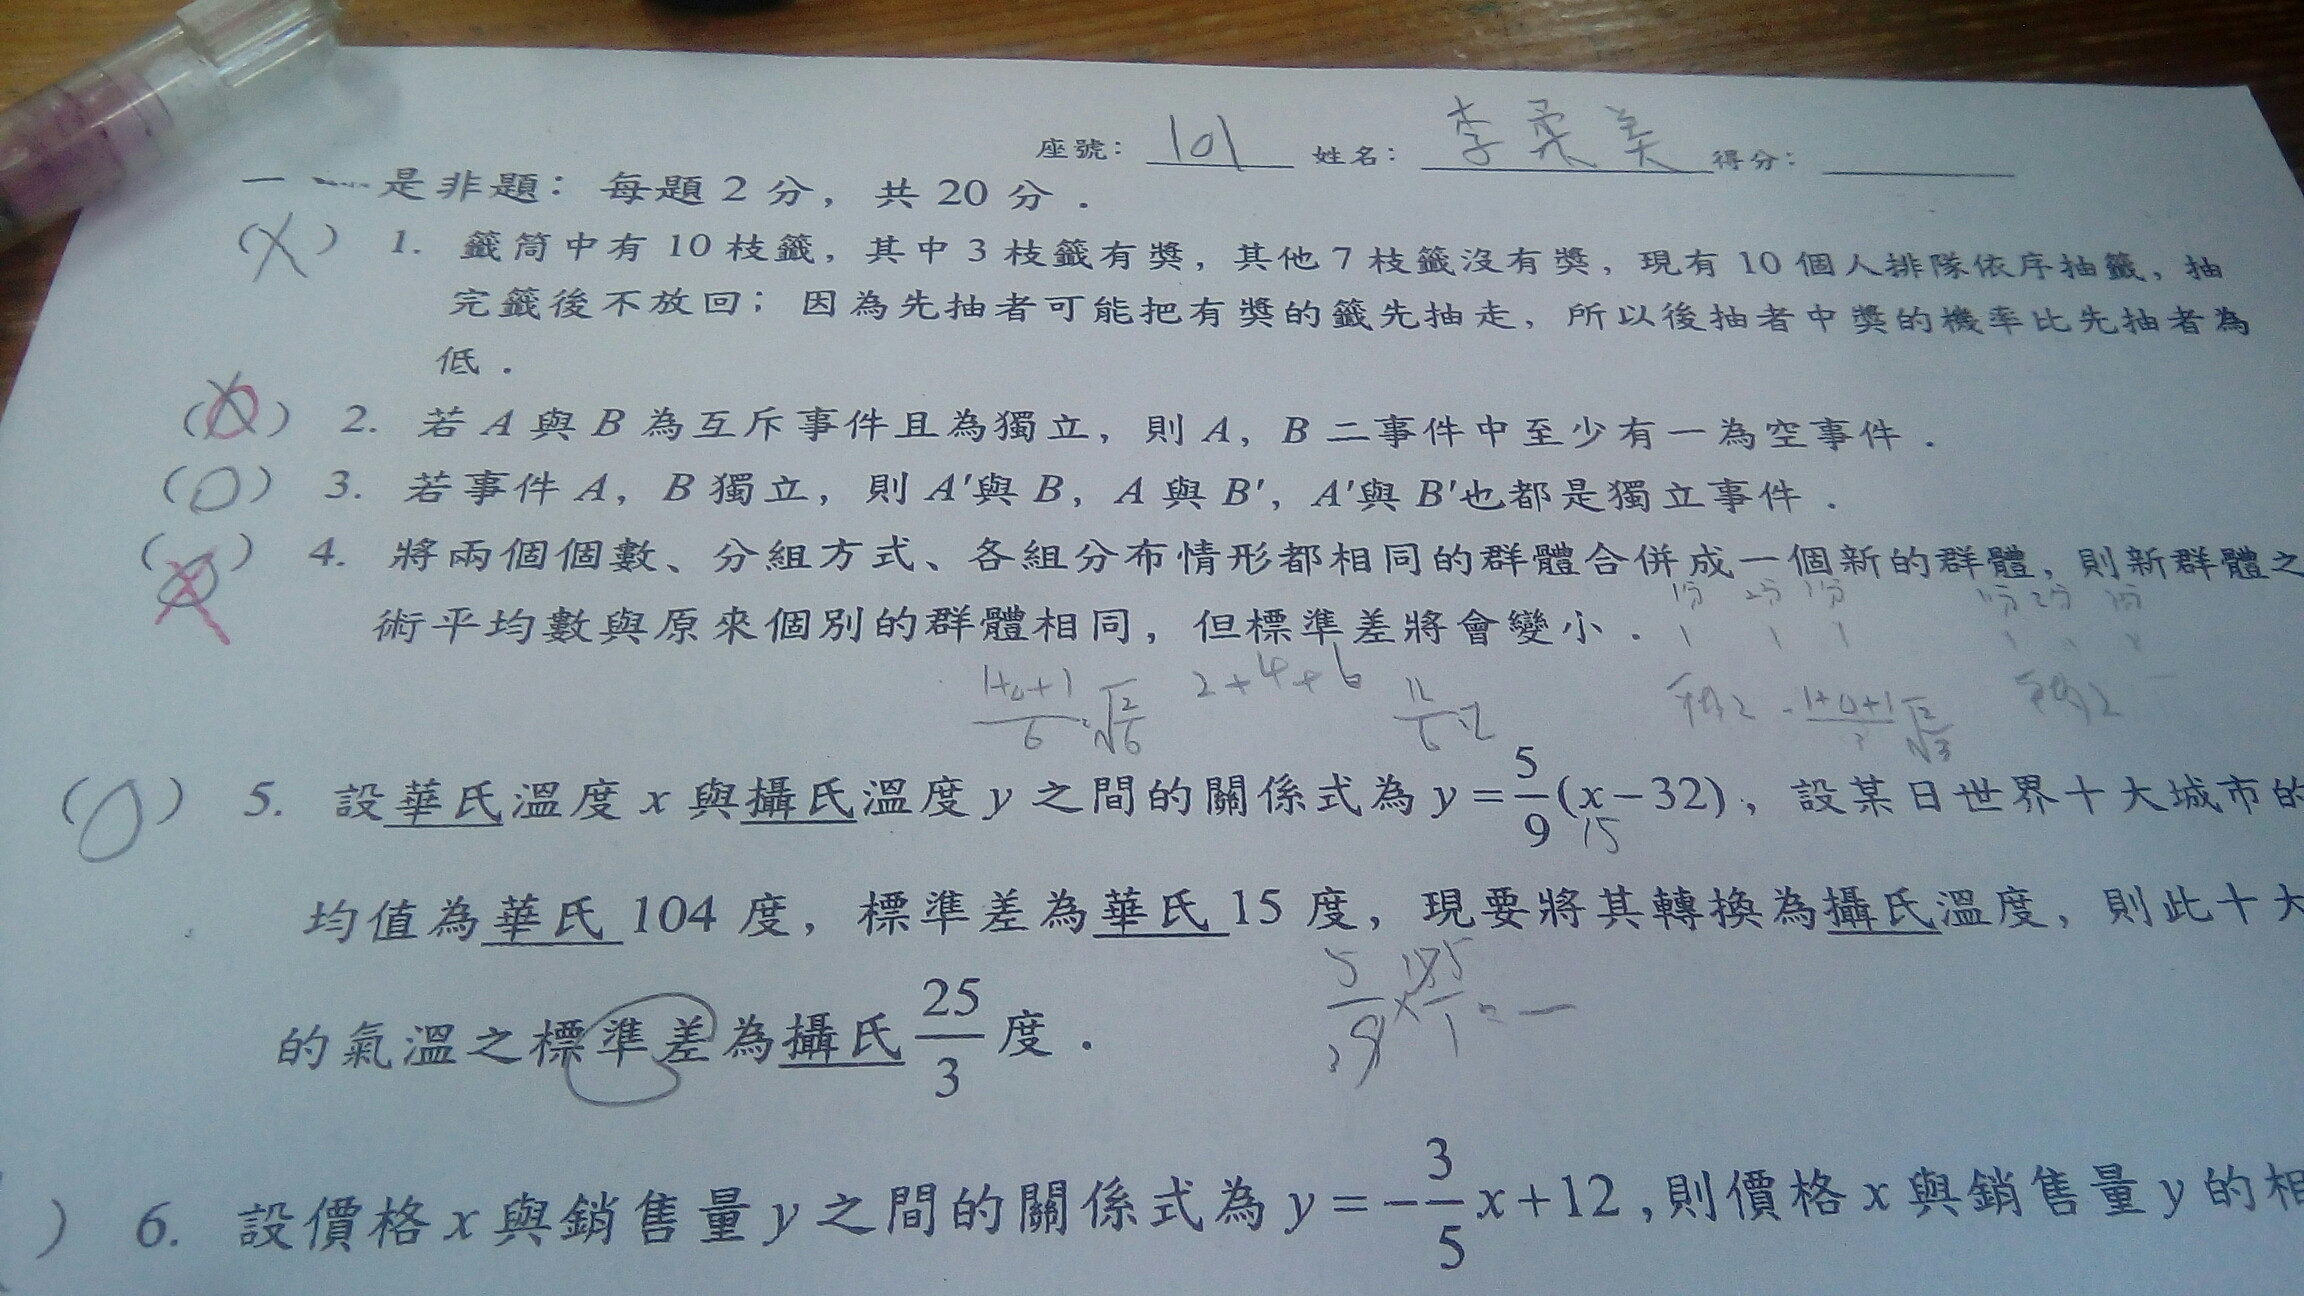 座號： 101 姓名： 李柔美 得分：
一 是非題：每題 2 分，共 20 分．
(X) 1. 籤筒中有 10 枝籤，其中 3 枝籤有獎，其他 7 枝籤沒有獎，現有 10 個人排隊依序抽籤，抽
完籤後不放回；因為先抽者可能把有獎的籤先抽走，所以後抽者中獎的機率比先抽者為
低．
(O) 2. 若 A 與 B 為互斥事件且為獨立，則 A，B 二事件中至少有一為空事件．
(O) 3. 若事件 A，B 獨立，則 A′與 B，A 與 B′，A′與 B′也都是獨立事件．
(X) 4. 將兩個個數、分組方式、各組分布情形都相同的群體合併成一個新的群體，則新群體之
術平均數與原來個別的群體相同，但標準差將會變小．
1分 2分 3分
1 1 1
1+0+1/6 √2/6 2+4+6 12/6=2 平均2 1+0+1/3 √2/3 平均2
(O) 5. 設華氏溫度 x 與攝氏溫度 y 之間的關係式為 y = 5/9 (x − 32)，設某日世界十大城市的
15
均值為華氏 104 度，標準差為華氏 15 度，現要將其轉換為攝氏溫度，則此十大
的氣溫之標準差為攝氏 25/3 度．
) 6. 設價格 x 與銷售量 y 之間的關係式為 y = −3/5 x + 12 ,則價格 x 與銷售量 y 的相